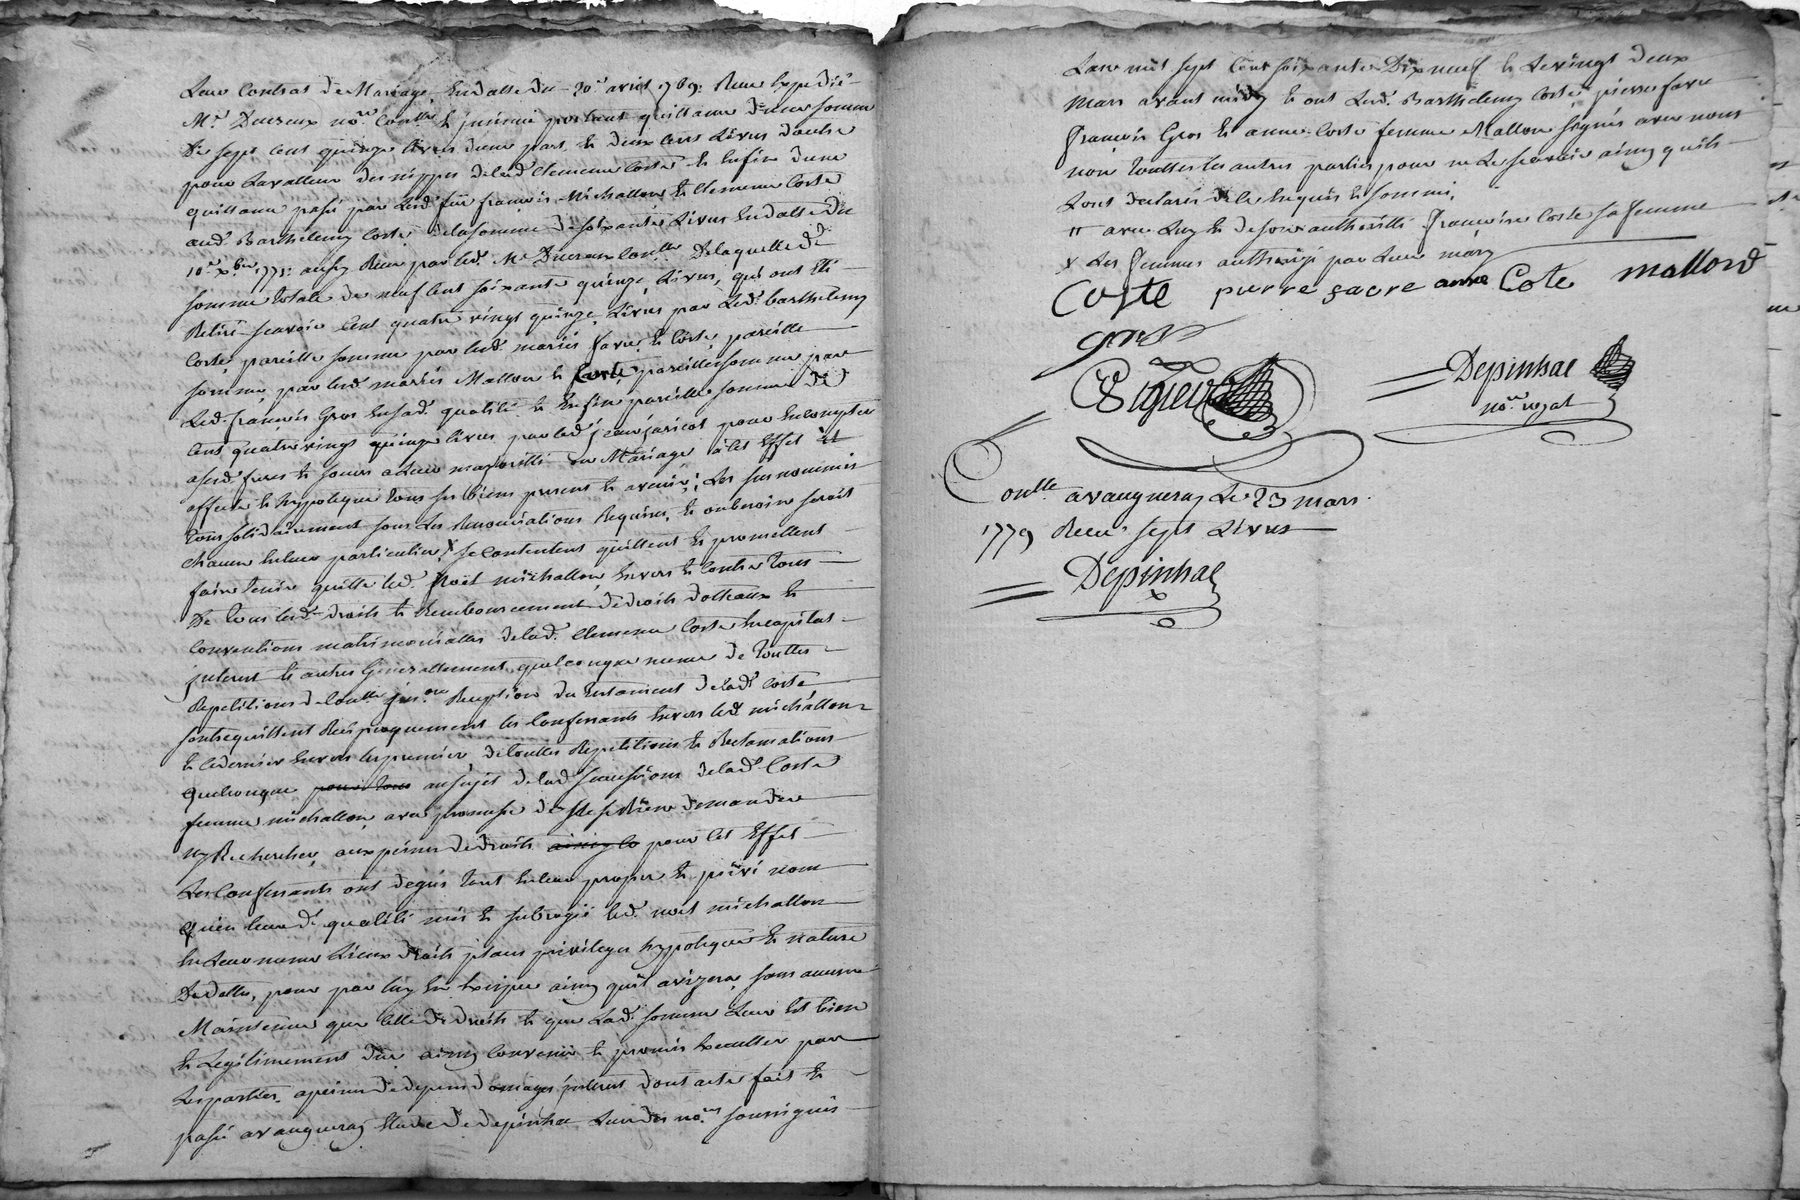 Leur Contrat de Mariage, En datte du 20e avril 1769: Reçu Expedié
Me Ducreux nore Conllé & jnsinué portant quittance d'une somme
De sept cent quinze Livres d'une part, & deux Cent Livres d'autre
pour La valleur des nippes de lad. Clemence Coste & Enfin d'une
quittance passé par Led. feu françois Michallon & Clemence Coste
aud. Barthelemy Coste, de la somme de soixante Livres En datte du
10e xbre 1771: aussy Reçu par led. Me Ducreux Conllé De laquelle de
somme totale de neuf Cent soixante quinze Livres, qui ont été
Retiré scavoir Cent quatre vingt quinze Livres par Led. barthelemy
Coste, pareille somme par lesd. mariés favre & Coste, pareille
somme, par lesd. mariés Mallon & Coste, pareille somme par
Led. francois Gros En sad. qualité & Enfin pareille somme de
Cent quatre vingt quinze livres par led. jean jaricot pour En compter
a sesd. freres & soeurs a Leur majorité ou Mariage a cet Effet il
affecte & hypoteque tous ses biens presents & avenir; Les susnommés
tous solidairement sous Les Renonciations Requises, & ou besoin seroit
chacun En leur particulier, x se Contentent quittent & promettent
faire tenir quitte led. noël michallon, Envers & Contre tous
De tous lesd. droits & Remboursement de droits dotteaux &
Conventions matrimonialles de lad. Clemence Coste En capital
jnterest & autres Generallement quelconque meme de touttes
Repetitions de Conlle jnson Reception du testament de lad. Coste
sentrequittent Reciproquement les Confessants Envers led. michallon
& le dernier Envers les premiers, de touttes Repetitions & Reclamations
quelconque au sujet de lad. succession de lad. Coste
femme michallon, avec promesse de Se Rien demander
ny Rechercher, aux peines de droits pour Cet Effet
Les Confessants ont depuis tant En leur propre & privé nom
qu'en leurd. qualité mis & subrogé led. noël michallon
En Leur nom Lieux droits places privileges hypoteque & nature
De dette, pour par luy En Exiger ainsy quil avizera, sans aucune
Maintenue que Celle de droits & que Lad. somme Leur Est bien
& Legitimement due ainsy Convenu & promis Executter par
Les parties, a peine de depens domages jnterest dont acte fait &
passé a vaugneray Etude de depinhac L'un des nores soussignés
L'an mil sept Cent soixante Dix neuf & Le vingt deux
Mars avant midy & ont Led. Barthelemy Coste, pierre favre
francois Gros & anne Coste femme Mallon signés avec nous
non touttes les autres parties pour ne Le scavoir ainsy quils
Lont declarés de ce Enquis & sommé,
" avec Luy & de son authorité francoise Coste sa femme
x Les femmes authorizé par Leur mary
Coste pierre favre anne Cote mallord
gros
Depinhac
nore royal
Conllé a vaugneray Le 23 mars
1779 Recu sept Livres
Depinhac